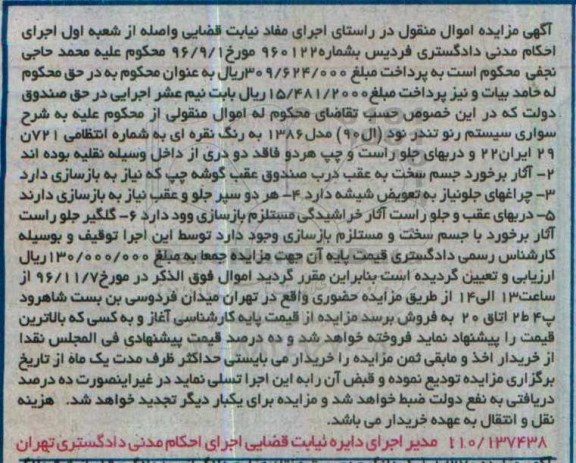 آگهی مزایده اموال منقول در راستای اجرای مفاد نیابت قضایی واصله از شعبه اول اجرای
احکام مدنی دادگستری فردیس بشماره ۹۶۰۱۲۲۰ مورخ۹۶/۹/۱ محکوم علیه محمد حاجی
نجفی محکوم است به پرداخت مبلغ ۳۰۹/۶۲۴/۰۰۰ریال به عنوان محکوم به در حق محکوم
له حامد بیات و نیز پرداخت مبلغ۱۵/۴۸۱/۲۰۰۰ریال بابت نیم عشر اجرایی در حق صندوق
دولت که در این خصوص حسب تقاضای محکوم له اموال منقولی از محکوم علیه به شرح
سواری سیستم رنو تندر نود (ال۹۰) مدل۱۳۸۶ به رنگ نقره ای به شماره انتظامی ۷۲۱ن
۲۹ ایران۲۲ و دربهای جلو راست و چپ هردو فاقد دو دری از داخل وسیله نقلیه بوده اند
۲- آثار برخورد جسم سخت به عقب درب صندوق عقب گوشه چپ که نیاز به بازسازی دارد
۳- چراغهای جلونیاز به تعویض شیشه دارد ۴- هر دو سپر جلو و عقب نیاز به بازسازی دارند
۵- دربهای عقب و جلو راست آثار خراشیدگی مستلزم بازسازی وود دارد ۶- گلگیر جلو راست
آثار برخورد با جسم سخت و مستلزم بازسازی وجود دارد توسط این اجرا توقیف و بوسیله
کارشناس رسمی دادگستری قیمت پایه آن جهت مزایده جمعا به مبلغ ۱۳۰/۰۰۰/۰۰۰ریال
ارزیابی و تعیین گردیده است بنابراین مقرر گردید اموال فوق الذکر در مورخ۹۶/۱۱/۷ از
ساعت۱۳ الی۱۴ از طریق مزایده حضوری واقع در تهران میدان فردوسی بن بست شاهرود
پ۴ ط۲ اتاق ۲۰ به فروش برسد مزایده از قیمت پایه کارشناسی آغاز و به کسی که بالاترین
قیمت را پیشنهاد نماید فروخته خواهد شد و ده درصد قیمت پیشنهادی فی المجلس نقدا
از خریدار اخذ و مابقی ثمن مزایده را خریدار می بایستی حداکثر ظرف مدت یک ماه از تاریخ
برگزاری مزایده تودیع نموده و قبض آن رابه این اجرا تسلی نماید در غیراینصورت ده درصد
دریافتی به نفع دولت ضبط خواهد شد و مزایده برای یکبار دیگر تجدید خواهد شد. هزینه
نقل و انتقال به عهده خریدار می باشد.
۱۱۰/۱۳۷۴۳۸ مدیر اجرای دایره نیابت قضایی اجرای احکام مدنی دادگستری تهران